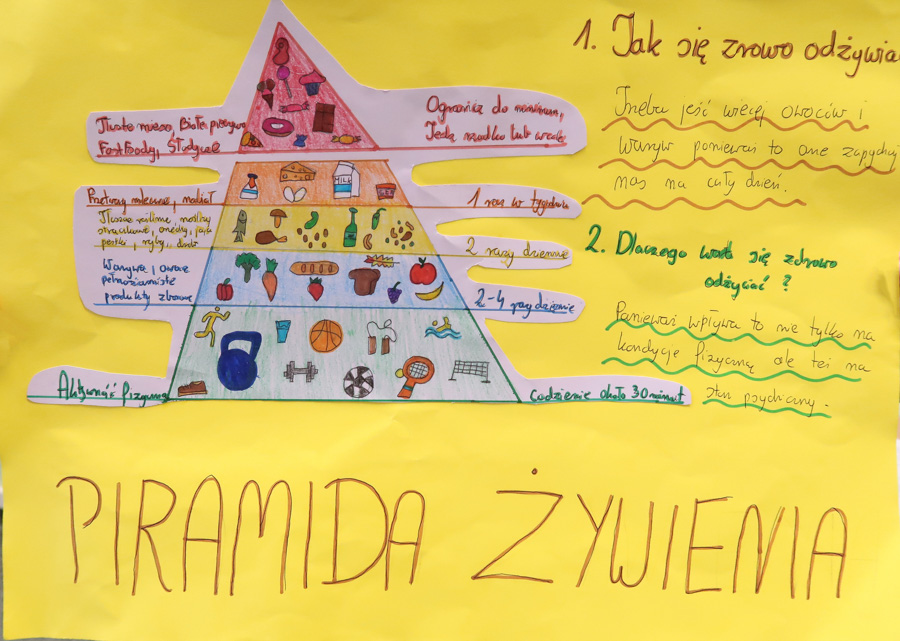 1. Jak się zrowo odżywia
Trzeba jeść więcej owoców i
Warzyw ponieważ to one zapychaj
nas na cały dzień.
2. Dlaczego warto się zdrowo
odżyciać ?
Ponieważ wpływa to nie tylko na
kondycję fizyczną ale też na
stan psychiczny.
Tłuste mięso, Białe pieczywo
FastFoody, Słodycze
Ogranicz do minimum,
Jedz rzadko lub wcale
Przetwory mleczne, nabiał
1 raz w tygodniu
Tłuszcze roślinne, nasiona
strączkowe, orzechy, jaja
pestki, ryby, drób
2 razy dziennie
Warzywa i owoce
pełnoziarniste
produkty zbożowe
2-4 razy dziennie
MILK
Aktywność fizyczna
Codziennie około 30 minut
PIRAMIDA ŻYWIENIA